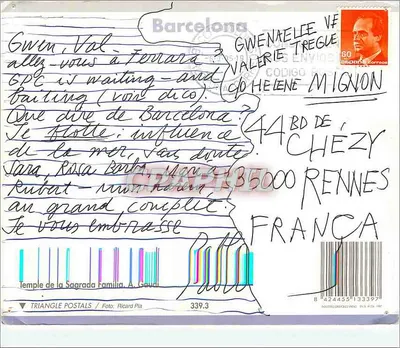 Barcelona
Gwen, Val -
allez-vous à Ferrara?
GPC is waiting - and
baiting (voir dico)
Que dire de Barcelona?
Je flotte: influence
de la mer, sans doute
Sara, Rosa Barba,
Rubat -
au grand complet.
Je vous embrasse
Pablo
GWENAELLE VE
VALERIE TREGUE
c/o HELENE MIGNON
44 BD DE
CHÉZY
35000 RENNES
FRANÇA
CODIGO
50
Temple de la Sagrada Familia. A. Gaudí
TRIANGLE POSTALS / Foto: Ricard Pla
339.3
8 424455 133397